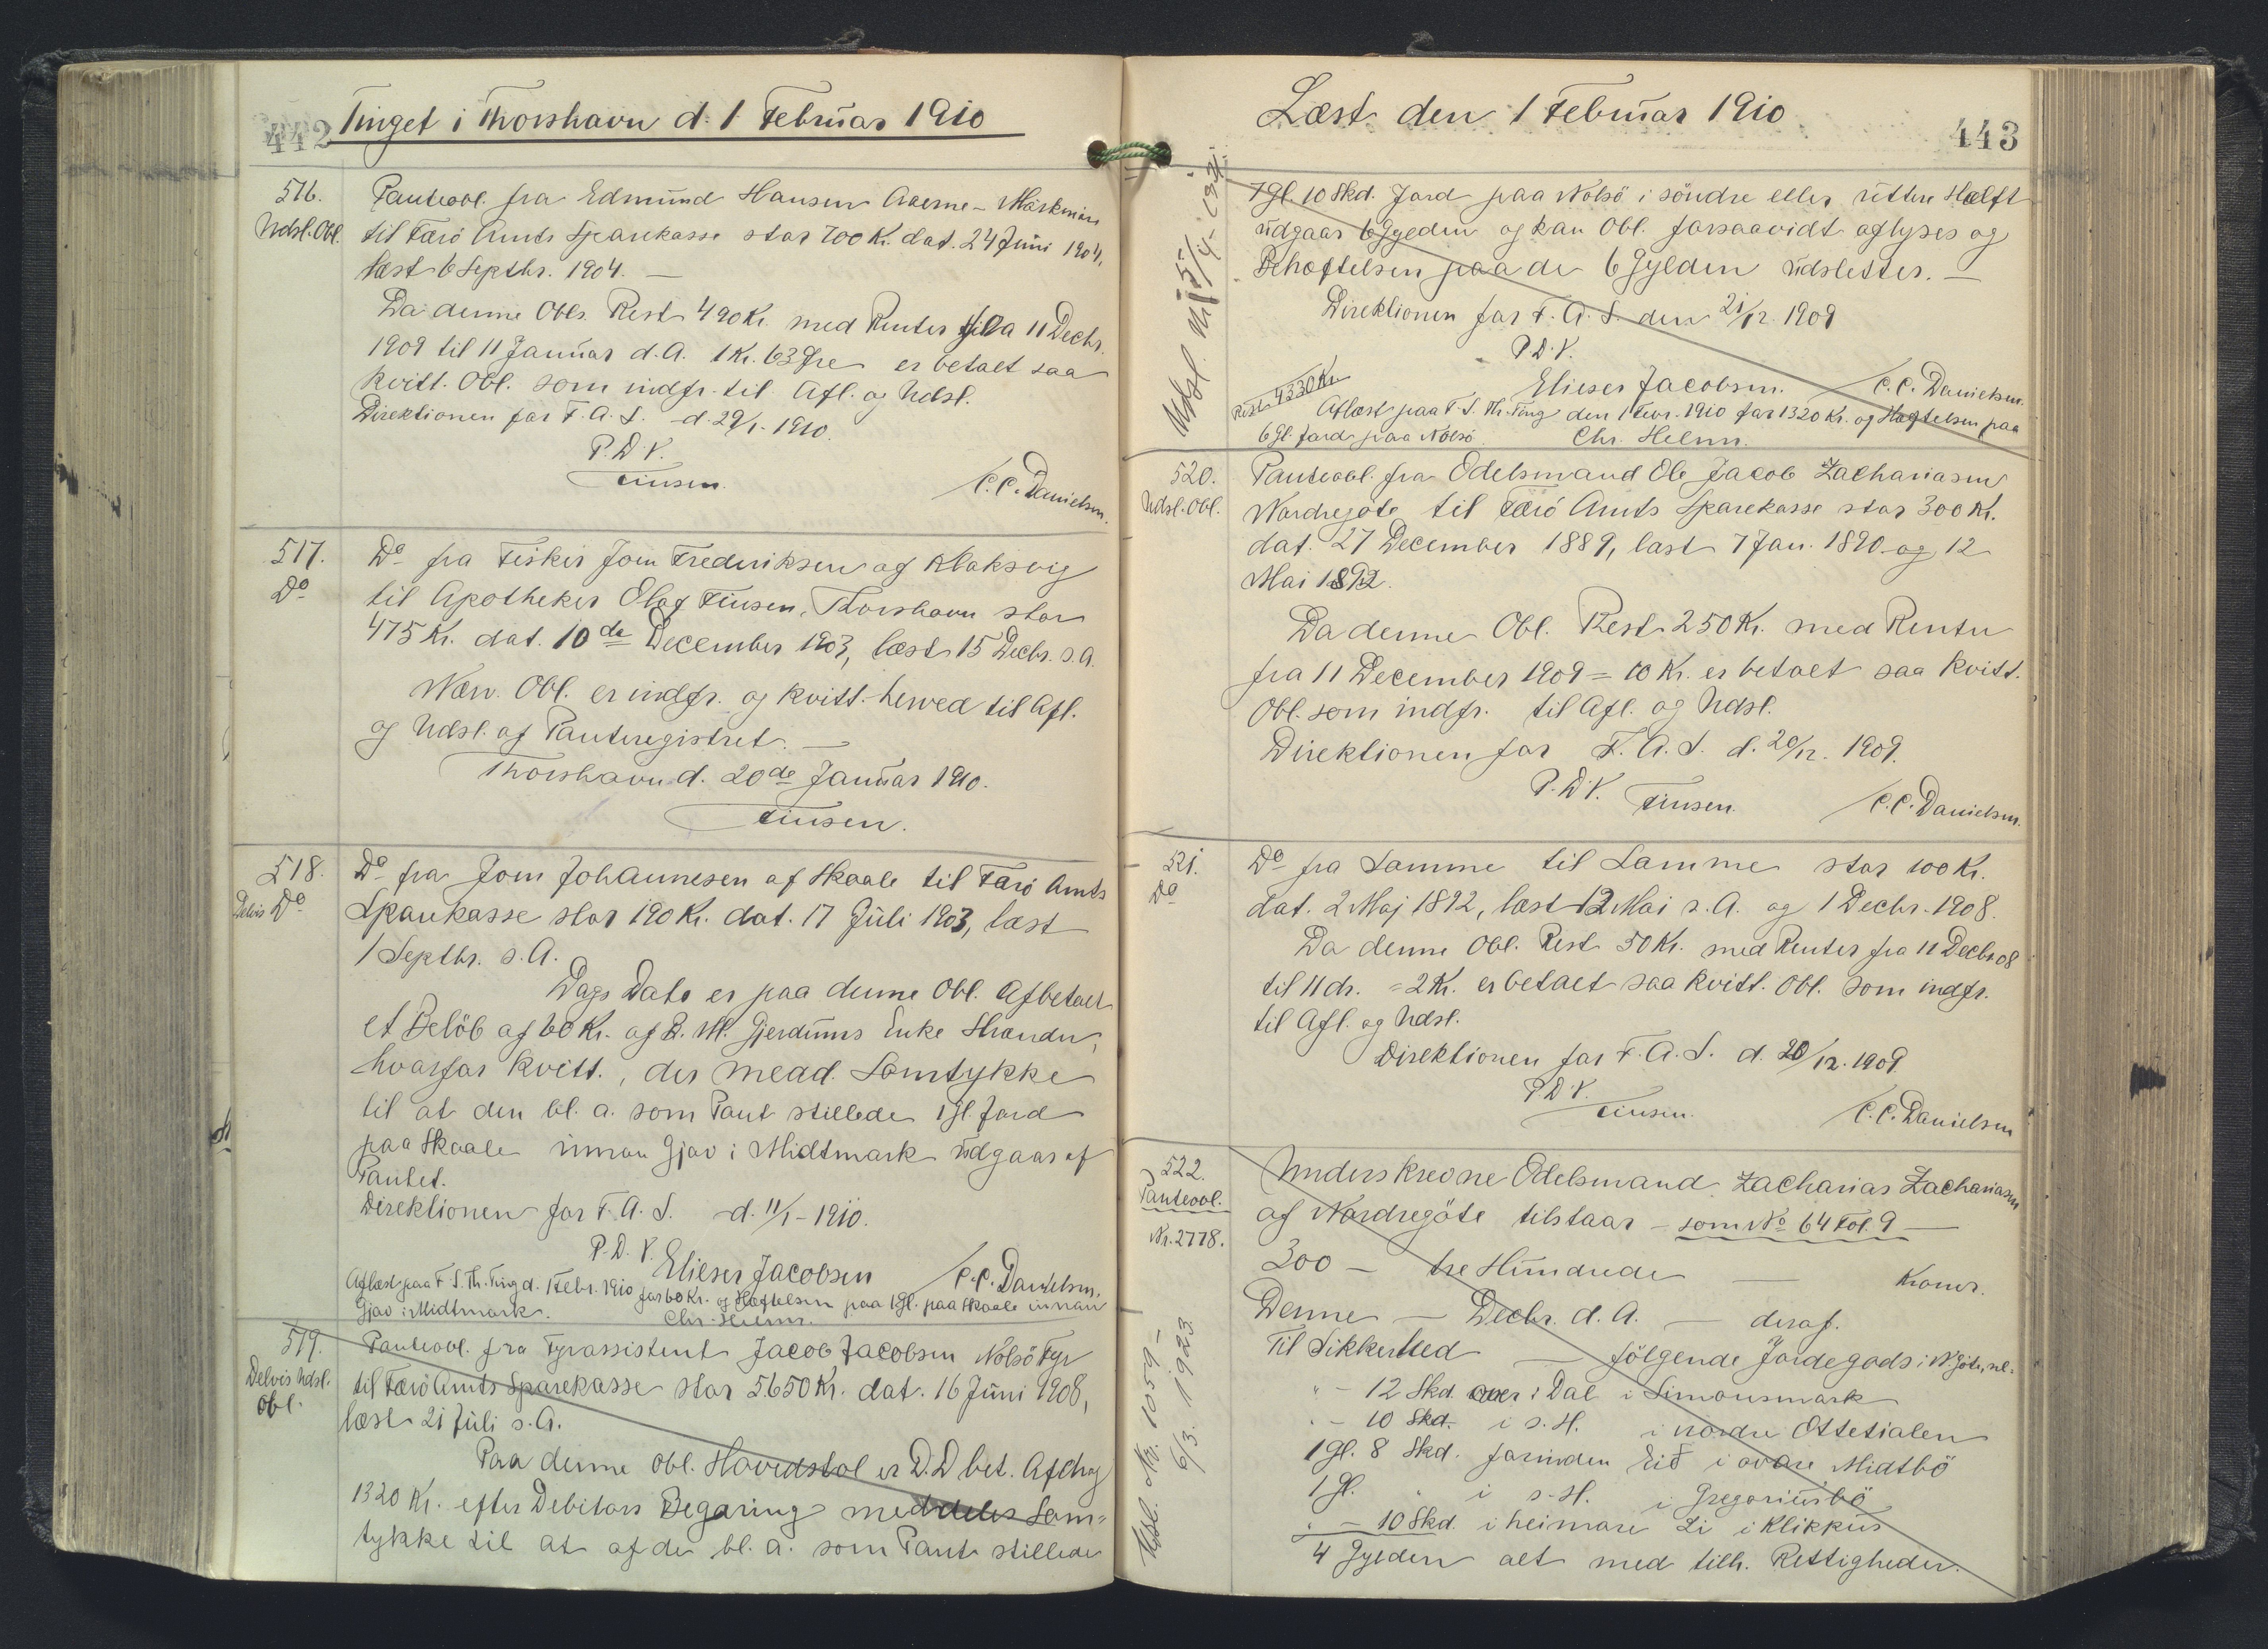 442 Tinget i Thorshavn d. 1 Februar 1910
516.
Udsl. Obl.
Panteobl. fra Edmund Hansen Aaerne - Mærkenæs
til Færö Amts Sparekasse stor 700 Kr. dat. 24 Juni 1904,
læst 6 Septbr. 1904. —
Da denne Obls. Rest 490 Kr. med Renter fra 11 Decbr.
1909 til 11 Januar d. A. 1 Kr. 63 Øre er betalt saa
kvitt. Obl. som indfr. til Afl. og Udsl.
Direktionen for F. A. S. d. 29/1 - 1910.
P. D. V.
Finsen. C. C. Danielsen.
517.
Do
Do fra Fisker Joen Frederiksen af Klaksvig
til Apotheker Olaf Finsen, Thorshavn stor
475 Kr. dat. 10de December 1903, læst 15 Decbr. s. A.
Nærv. Obl. er indfr. og kvitt. herved til Afl.
og Udsl. af Panteregistret. —
Thorshavn d. 20de Januar 1910.
Finsen.
518.
Delvis Do
Do fra Joen Johannesen af Skaale til Færö Amts
Sparekasse stor 190 Kr. dat. 17 Juli 1903, læst
1 Septbr. s. A.
Dags Dato er paa denne Obl. Afbetalt
et Belöb af 60 Kr. af D. M. Gjerdums Enke Strander,
hvorfor kvitt., der mead. Samtykke
til at den bl. a. som Pant stillede 1 Gl. Jord
paa Skaale innan Gjov i Midtmark udgaar af
Pantet.
Direktionen for F. A. S. d. 11/1 - 1910.
P. D. V. Elieser Jacobsen C. C. Danielsen.
Aflæst paa F. S. Th. Ting d. 1 Febr. 1910 for 60 Kr. og Hæftelsen paa 1 Gl. paa Skaale innan
Gjov i Midtmark. Chr. Helms.
519.
Delvis Udsl.
Obl.
Panteobl. fra Fyrassistent Jacob Jacobsen Nolsö Fyr
til Færö Amts Sparekasse stor 5650 Kr. dat. 16 Juni 1908,
læst 21 Juli s. A.
Paa denne Obl. Hovedstol er D. D. bet. Afdrag
1320 Kr. efter Debitors Begæring meddeles Sam-
tykke til at af de bl. a. som Pant stillede
Læst den 1 Februar 1910 443
1 Gl. 10 Skd. Jord paa Nolsö i söndre eller uttere Hælft
udgaar 6 Gylden og kan Obl. forsaavidt aflyses og
Behæftelsen paa de 6 Gylden udslettes. —
Direktionen for F. A. S. den 21/12 1909
P. D. V.
Elieser Jacobsen. C. C. Danielsen.
Rest 4330 Kr.
Aflæst paa F. S. Th. Ting den 1 Febr. 1910 for 1320 Kr. og Hæftelsen paa
6 Gl. Jord paa Nolsö. Chr. Helms.
520.
Udsl. Obl.
Panteobl. fra Odelsmand Ole Jacob Zachariasen
Nordregöte til Færö Amts Sparekasse stor 300 Kr.
dat. 27 December 1889, læst 7 Jan. 1890 og 12
Mai 1892.
Da denne Obl. Rest 250 Kr. med Renter
fra 11 December 1909 = 10 Kr. er betalt saa kvitt.
Obl. som indfr. til Afl. og Udsl.
Direktionen for F. A. S. d. 20/12. 1909.
P. D. V. Finsen. C. C. Danielsen.
521.
Do
Do fra Samme til Samme stor 100 Kr.
dat. 2 Maj 1892, læst 12 Mai s. A. og 1 Decbr. 1908.
Da denne Obl. Rest 50 Kr. med Renter fra 11 Decbr 08
til 11 ds. = 2 Kr. er betalt saa kvitt. Obl. som indfr.
til Afl. og Udsl.
Direktionen for F. A. S. d. 20/12. 1909
P. D. V.
Finsen. C. C. Danielsen
522.
Panteobl.
Nr. 2778.
Underskrevne Odelsmand Zacharias Zachariasen
af Nordregöte tilstaar - som No 64 Fol. 9 —
300 — tre Hundrede — Kroner.
Denne — Decbr. d. A. — deraf.
Til Sikkerhed — fölgende Jordegods i N. Göte, nl.
" - 12 Skd. over i Dal i Simonsmark
" - 10 Skd. i s. H. i nordre Ottetialen
1 Gl. 8 Skd. forinden Eid i ovare Midtbö
1 Gl. " i s. H. i Gregoriusbö
" - 10 Skd. i heimare Li i Klikkus
4 Gylden alt med tilh. Rettigheder.
Udsl. No. 1059 -
6/3. 1923.